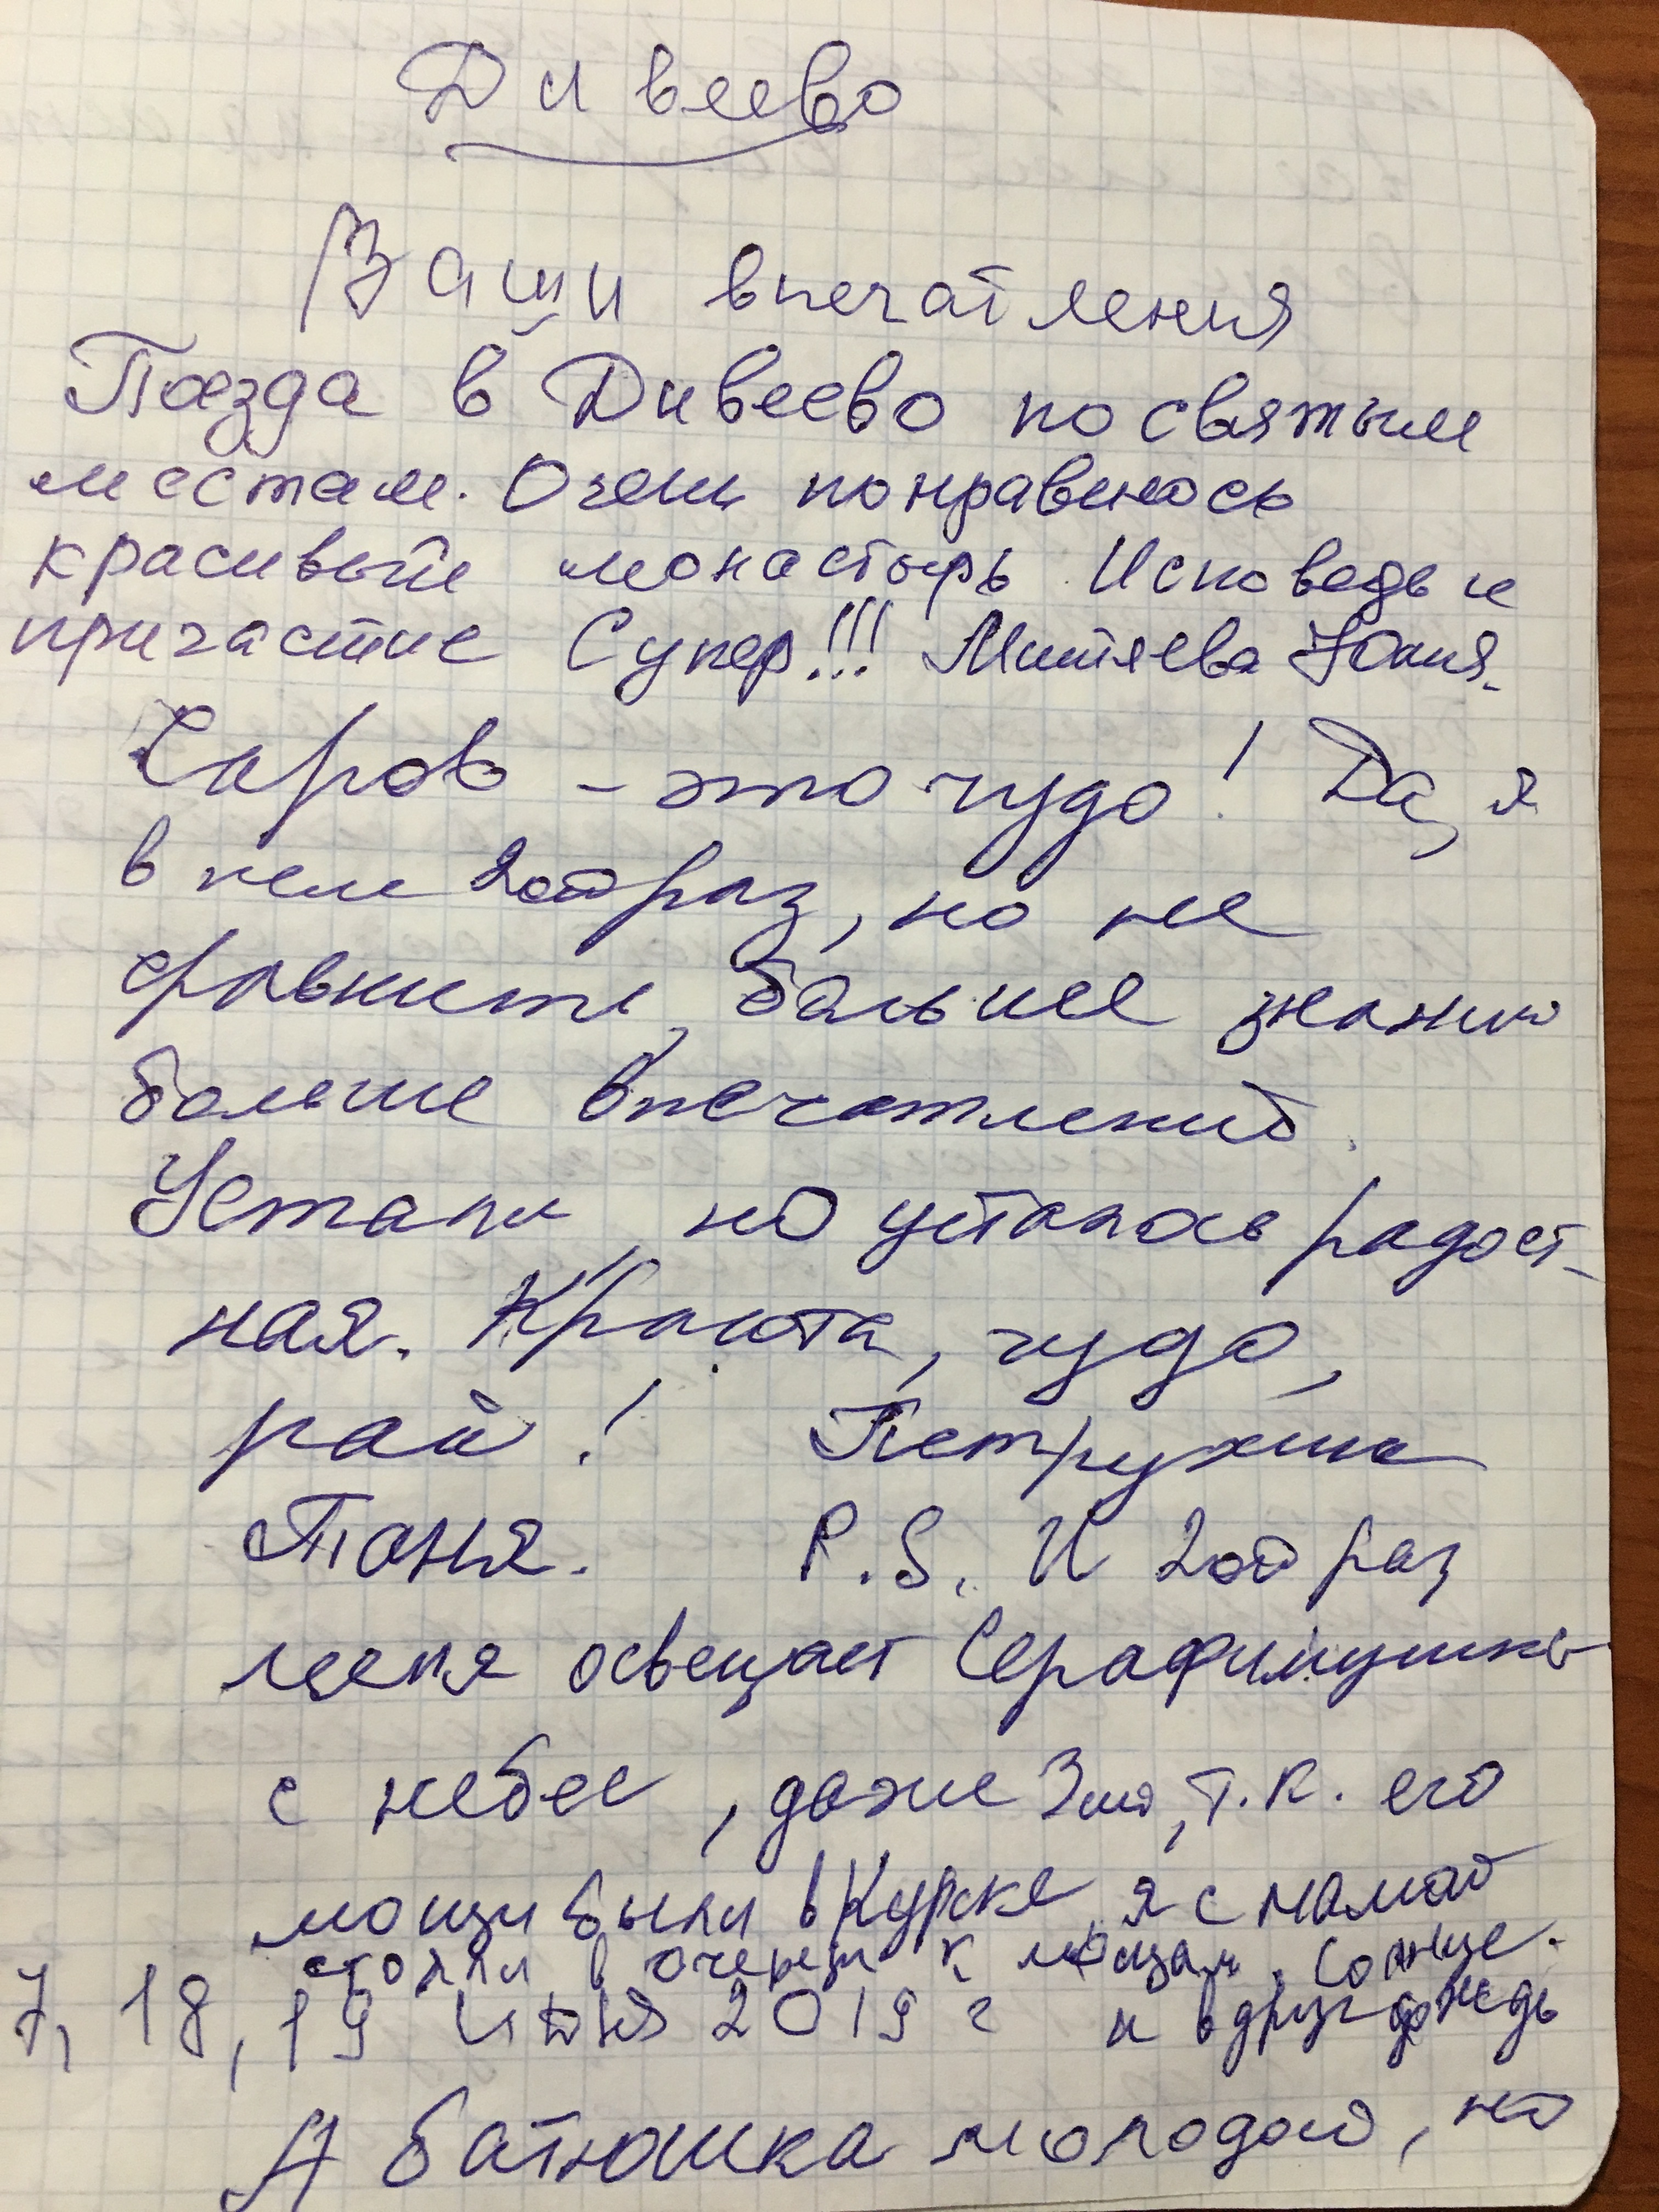 Дивеево
Ваши впечатления
Поезда в Дивеево по святым
местам. Очень понравилось
красивый монастырь Исповедь и
причастие Супер!!! Митяева Юлия.
Саров - это чудо! Да, я
в нем 2ой раз, но не
сравнить, больше знаний
больше впечатлений.
Устали, но усталось радост-
ная. Красота, чудо,
рай! Петрухина
Таня. P.S. И 2ой раз
меня освещает Серафимушка
с небес, даже 3ий, т.к. его
мощи были в Курске, я с мамой
стояли в очереди к мощам. Солнце.
7, 18, 19 июня 2019 г и вдруг дождь
А батюшка молодой, но